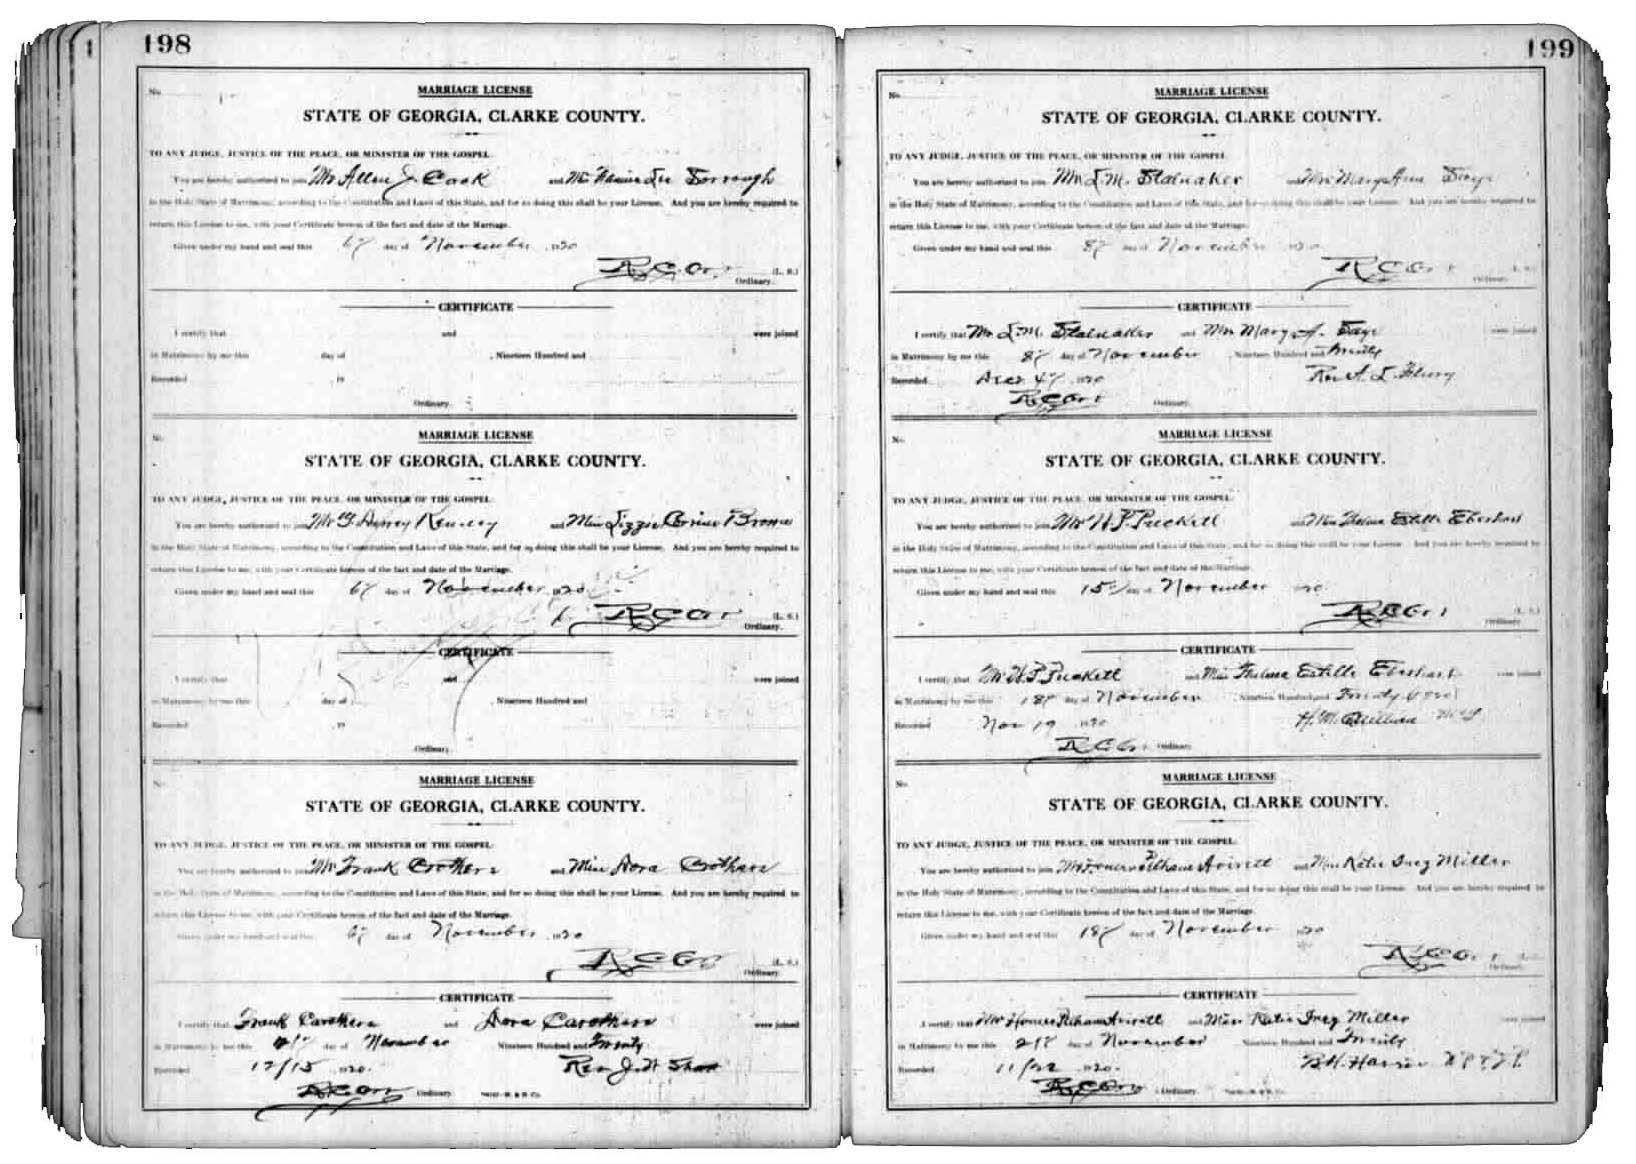 198
No.
MARRIAGE LICENSE
STATE OF GEORGIA, CLARKE COUNTY.
TO ANY JUDGE, JUSTICE OF THE PEACE, OR MINISTER OF THE GOSPEL
You are hereby authorized to join Mr Allen J. Cook and Lee
in the Holy State of Matrimony, according to the Constitution and Laws of this State, and for so doing this shall be your License. And you are hereby required to
return this License to me, with your Certificate hereon of the fact and date of the Marriage.
Given under my hand and seal this 6" day of November 1920
R C Orr (L. S.)
Ordinary.
CERTIFICATE
I certify that and were joined
in Matrimony by me this day of , Nineteen Hundred and
Recorded , 19
Ordinary.
No.
MARRIAGE LICENSE
STATE OF GEORGIA, CLARKE COUNTY.
TO ANY JUDGE, JUSTICE OF THE PEACE, OR MINISTER OF THE GOSPEL
You are hereby authorized to join Mr and Miss Lizzie
in the Holy State of Matrimony, according to the Constitution and Laws of this State, and for so doing this shall be your License. And you are hereby required to
return this License to me, with your Certificate hereon of the fact and date of the Marriage.
Given under my hand and seal this 6" day of November 1920
R C Orr (L. S.)
Ordinary.
CERTIFICATE
I certify that and were joined
in Matrimony by me this day of , Nineteen Hundred and
Recorded , 19
Ordinary.
No.
MARRIAGE LICENSE
STATE OF GEORGIA, CLARKE COUNTY.
TO ANY JUDGE, JUSTICE OF THE PEACE, OR MINISTER OF THE GOSPEL
You are hereby authorized to join Mr Frank and Miss Dora
in the Holy State of Matrimony, according to the Constitution and Laws of this State, and for so doing this shall be your License. And you are hereby required to
return this License to me, with your Certificate hereon of the fact and date of the Marriage.
Given under my hand and seal this 6" day of November 1920
R C Orr (L. S.)
Ordinary.
CERTIFICATE
I certify that Frank Carothers and Dora Carothers were joined
in Matrimony by me this day of November Nineteen Hundred and Twenty
Recorded 12/15 1920. Rev J. W
R C Orr Ordinary.
199
No.
MARRIAGE LICENSE
STATE OF GEORGIA, CLARKE COUNTY.
TO ANY JUDGE, JUSTICE OF THE PEACE, OR MINISTER OF THE GOSPEL
You are hereby authorized to join Mr L. M. Stalnaker and Mrs Mary Ann Saye
in the Holy State of Matrimony, according to the Constitution and Laws of this State, and for so doing this shall be your License. And you are hereby required to
return this License to me, with your Certificate hereon of the fact and date of the Marriage.
Given under my hand and seal this 8" day of November 1920
R C Orr (L. S.)
Ordinary.
CERTIFICATE
I certify that Mr L. M. Stalnaker and Mrs Mary A. Saye were joined
in Matrimony by me this 8" day of November , Nineteen Hundred and Twenty
Recorded Dec 4" 1920 Rev A. L. Flury
R C Orr Ordinary.
No.
MARRIAGE LICENSE
STATE OF GEORGIA, CLARKE COUNTY.
TO ANY JUDGE, JUSTICE OF THE PEACE, OR MINISTER OF THE GOSPEL
You are hereby authorized to join Mr W P. Puckett and Miss Thelma Estelle Eberhart
in the Holy State of Matrimony, according to the Constitution and Laws of this State, and for so doing this shall be your License. And you are hereby required to
return this License to me, with your Certificate hereon of the fact and date of the Marriage.
Given under my hand and seal this 15" day of November 1920.
R C Orr (L. S.)
Ordinary.
CERTIFICATE
I certify that Mr W. P. Puckett and Miss Thelma Estelle Eberhart were joined
in Matrimony by me this 18" day of November , Nineteen Hundred and Twenty (1920)
Recorded Nov 19 1920 H. M.
R C Orr Ordinary.
No.
MARRIAGE LICENSE
STATE OF GEORGIA, CLARKE COUNTY.
TO ANY JUDGE, JUSTICE OF THE PEACE, OR MINISTER OF THE GOSPEL
You are hereby authorized to join Mr Homer Pelham Averett and Miss Katie Inez Miller
in the Holy State of Matrimony, according to the Constitution and Laws of this State, and for so doing this shall be your License. And you are hereby required to
return this License to me, with your Certificate hereon of the fact and date of the Marriage.
Given under my hand and seal this 18" day of November 1920
R C Orr (L. S.)
Ordinary.
CERTIFICATE
I certify that Mr Homer Pelham Averett and Miss Katie Inez Miller were joined
in Matrimony by me this 21" day of November Nineteen Hundred and Twenty
Recorded 11/22 1920. B. H. Harris
R C Orr , Ordinary.